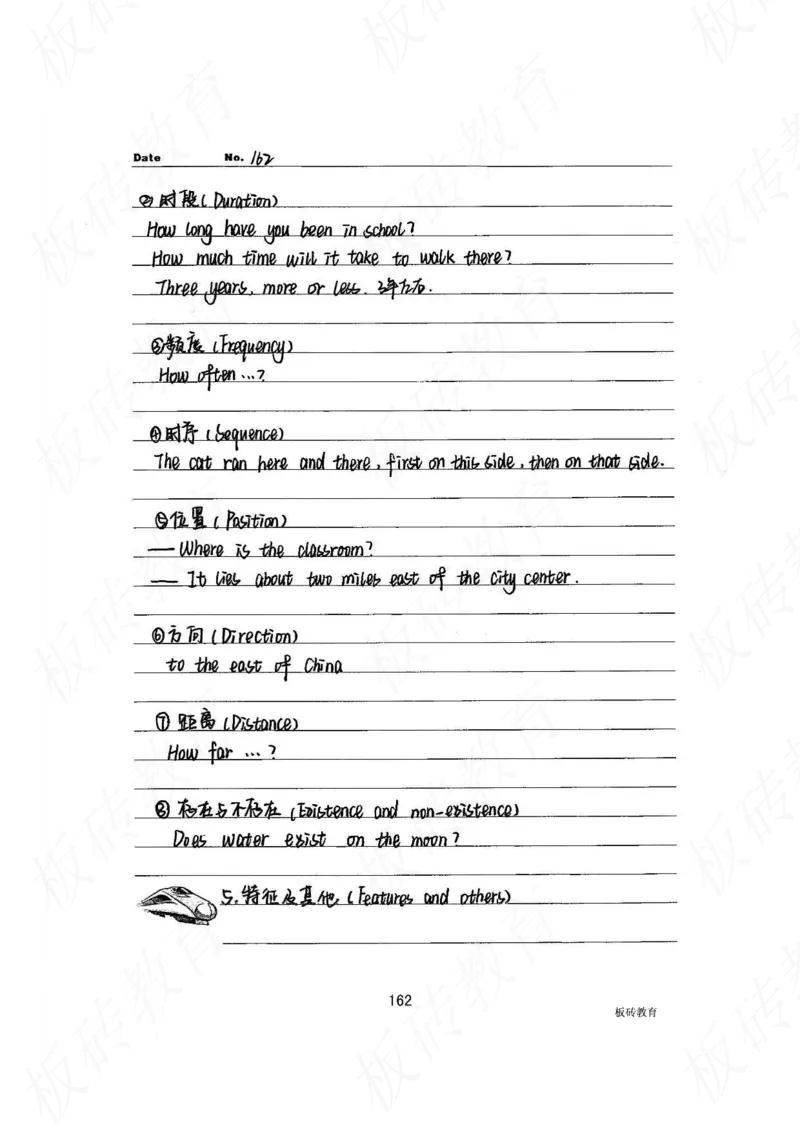 Date No. 162
②时段(Duration)
How long have you been in school?
How much time will it take to walk there?
Three years, more or less. 3年左右.
③频度(Frequency)
How often ...?
④时序(Sequence)
The cat ran here and there, first on this side, then on that side.
⑤位置(Position)
— Where is the classroom?
— It lies about two miles east of the city center.
⑥方向(Direction)
to the east of China
⑦距离(Distance)
How far ...?
⑧存在与不存在(Existence and non-existence)
Does water exist on the moon?
5.特征及其他(Features and others)
162
板砖教育